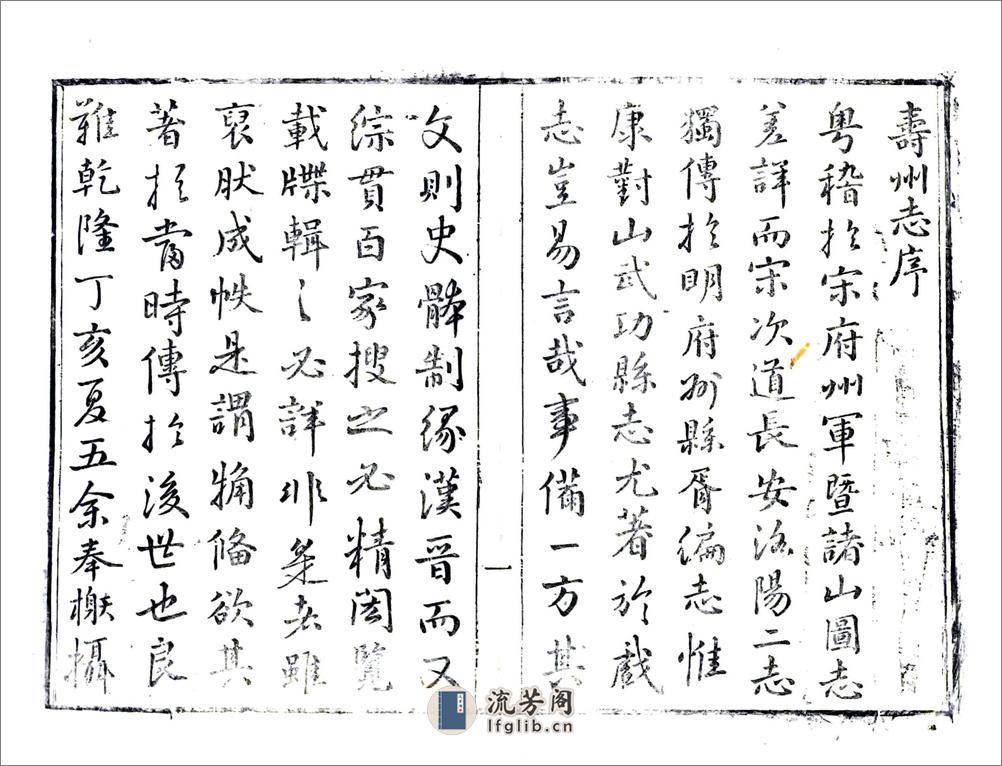 壽州志序
粤稽扵宋府州軍暨諸山圖志
差詳而宋次道長安洛陽二志
獨傳扵明府州縣胥徧志惟
康對山武功縣志尤著於戲
志豈易言哉事備一方其
一
文則史體制緣漢晉而又
綜貫百家搜之必精閱覽
載牒輯之必詳非
雖
裒肰成帙是謂備欲其
著扵當時傳扵後世也良
難乾隆丁亥夏五余奉檄攝
流芳阁
lfglib.cn